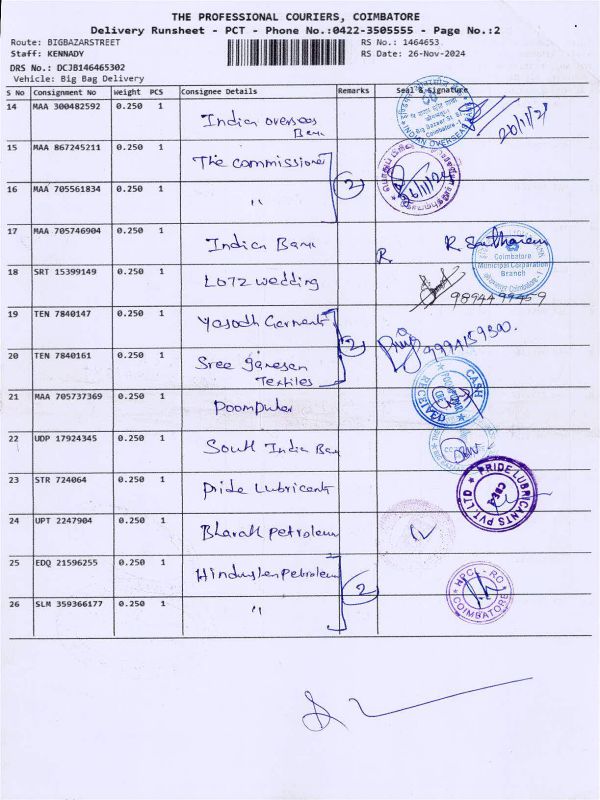 THE PROFESSIONAL COURIERS, COIMBATORE
Delivery Runsheet - PCT - Phone No.:0422-3505555 - Page No.:2
Route: BIGBAZARSTREET
RS No.: 1464653
Staff: KENNADY
RS Date: 26-Nov-2024
DRS No.: DCJB146465302
Vehicle: Big Bag Delivery
S No Consignment No Weight PCS Consignee Details Remarks Seal & Signature
14 MAA 300482592 0.250 1 Indian overseas
Bank
26/11/24
15 MAA 867245211 0.250 1 The commissioner
2
26/11/24
16 MAA 705561834 0.250 1 "
17 MAA 705746904 0.250 1 Indian Bank
R. Coimbatore
Municipal Corporation
Branch
18 SRT 15399149 0.250 1 Lotz wedding
9894499459
19 TEN 7840147 0.250 1 Yasodh Garments
2
9994159300.
20 TEN 7840161 0.250 1 Sree ganesan
Textiles
21 MAA 705737369 0.250 1 Poompuhar
CASH
22 UDP 17924345 0.250 1 South Indian Ban
23 STR 724064 0.250 1 Pride Lubricants
PRIDE LUBRICANTS PVT. LTD
CBE
24 UPT 2247904 0.250 1 Bharath petroleum
25 EDQ 21596255 0.250 1 Hindustan petroleum
2
HPCL-RO
COIMBATORE
26 SLM 359366177 0.250 1 "